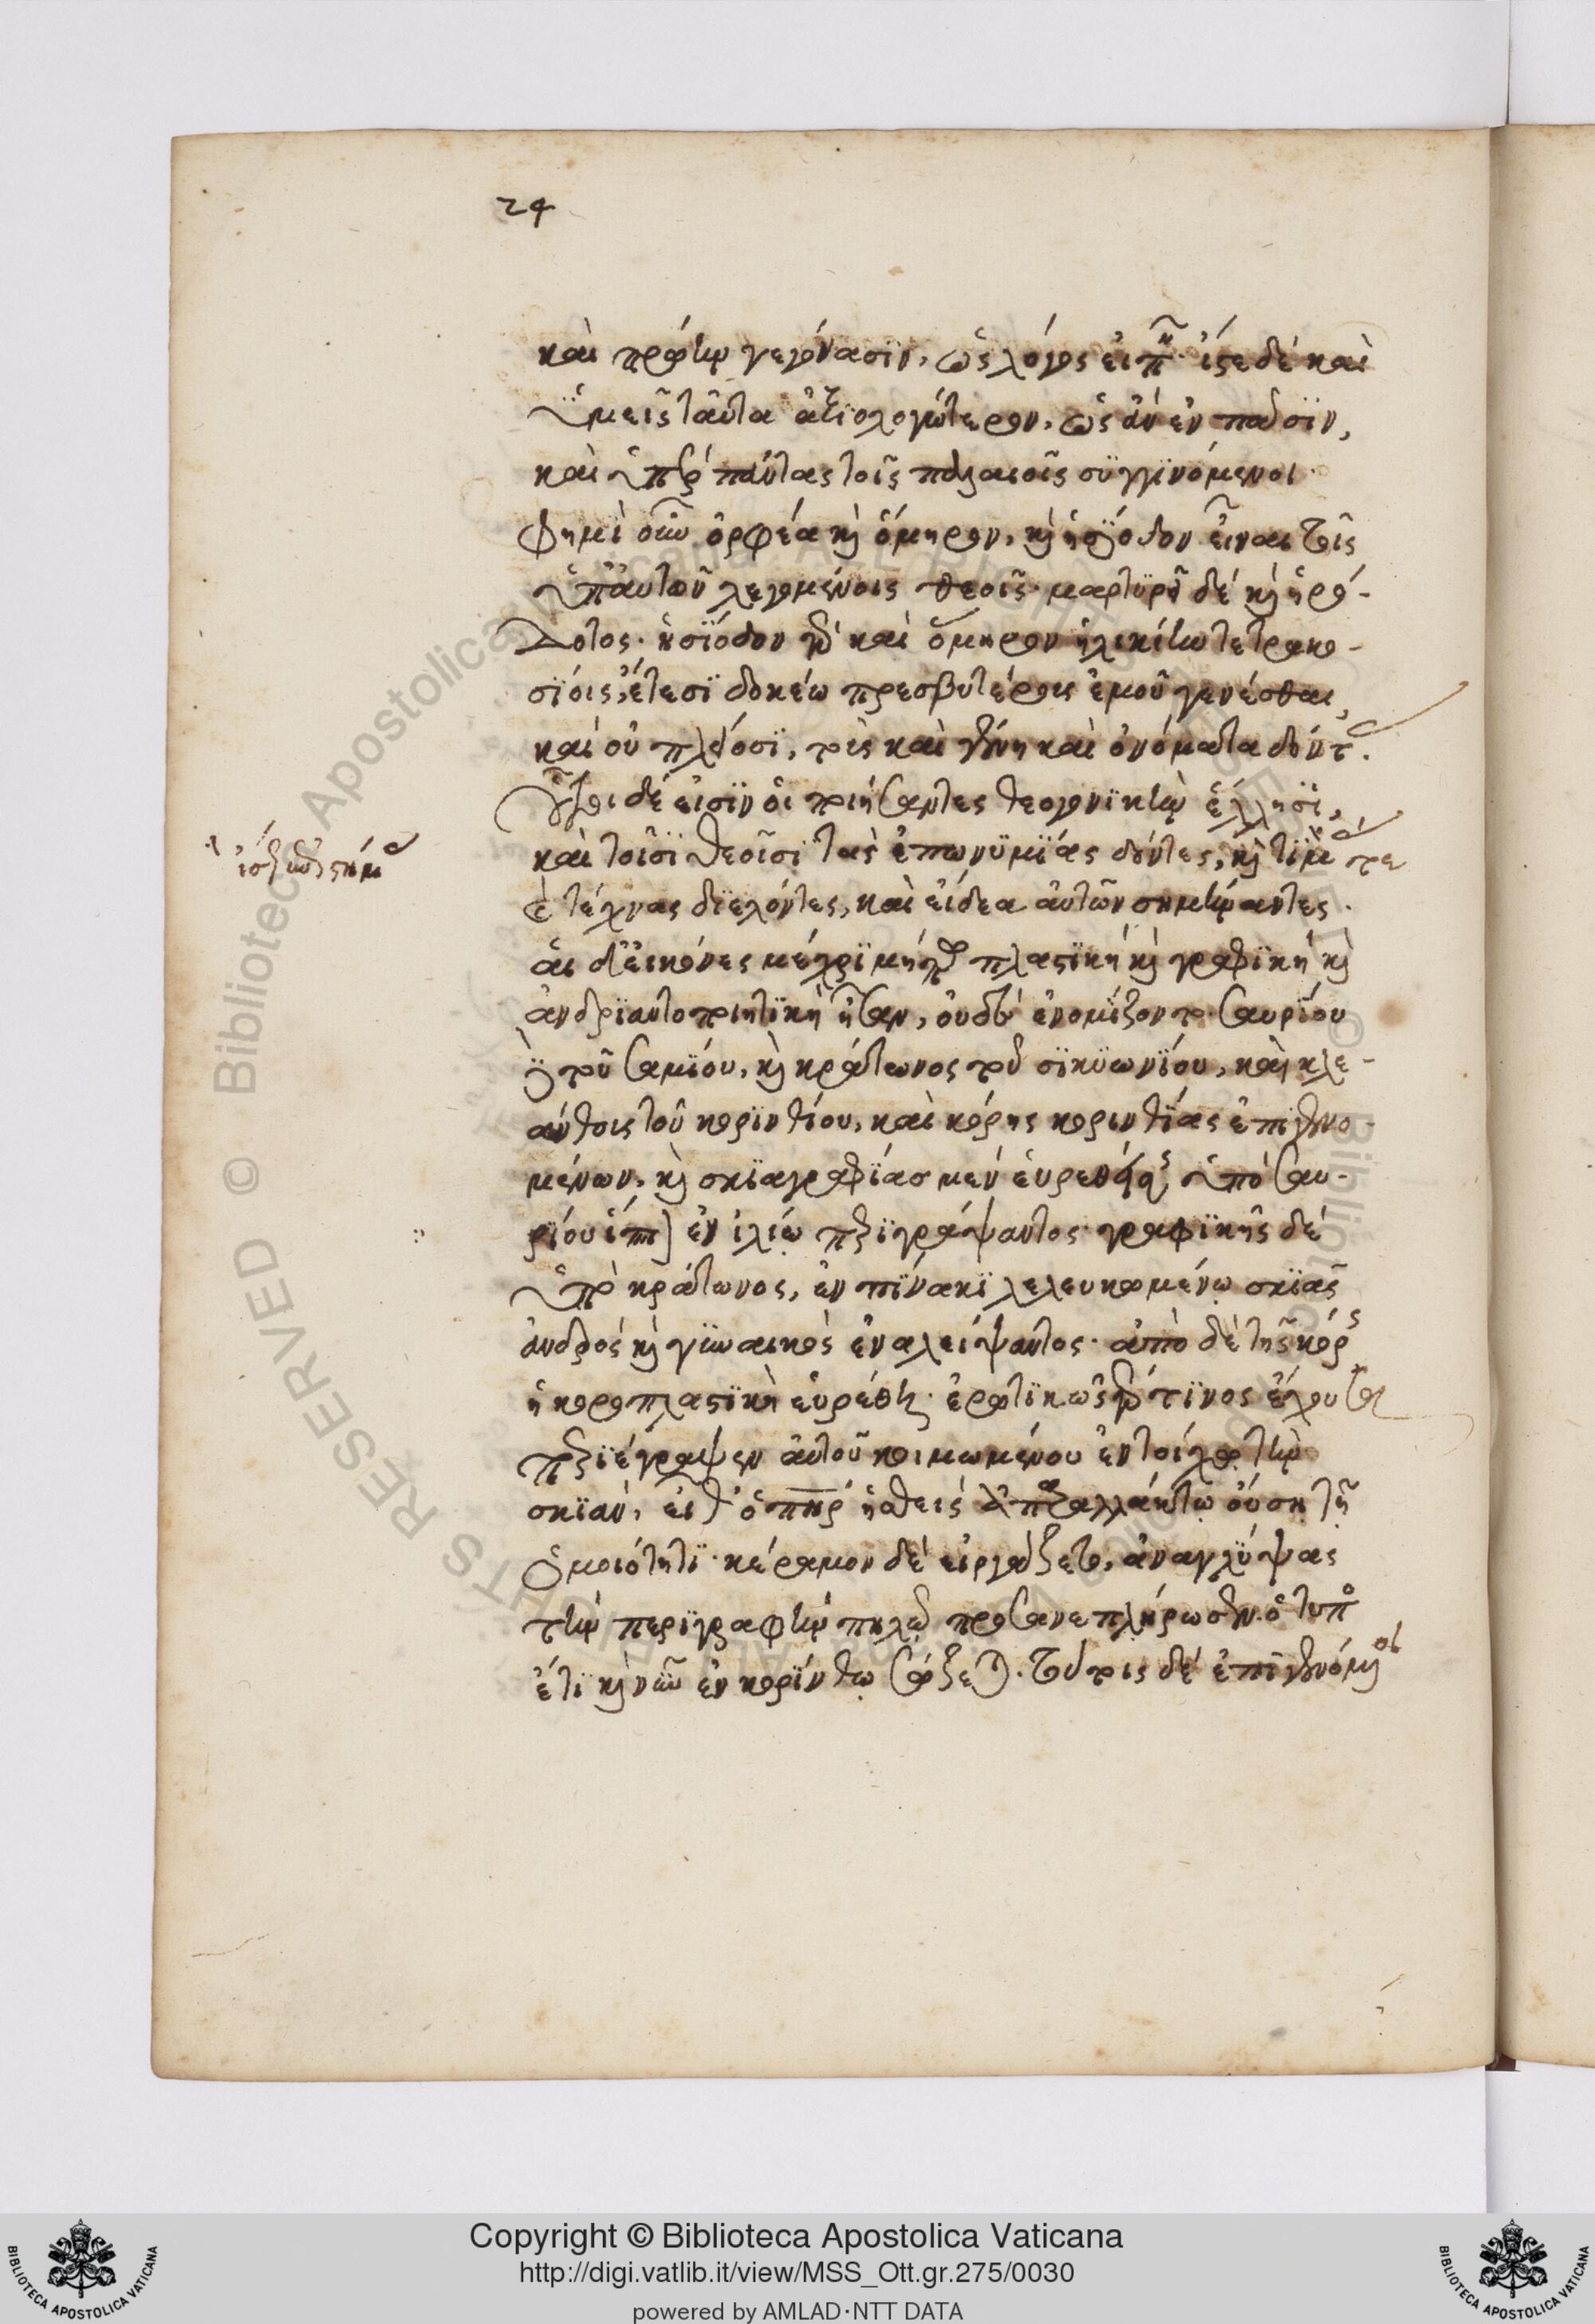 24
καὶ πρώτην γεγόνασιν, ὡς λόγος εἰπεῖν. ἴστε δὲ καὶ
ὑμεῖς ταῦτα ἀξιολογώτερον, ὡς ἂν ἐν πᾶσιν,
καὶ ὑπὲρ πάντας τοῖς παλαιοῖς συγγινόμενοι.
φημὶ οὖν ὀρφέα καὶ ὅμηρον, καὶ ἡσίοδον εἶναι τοῖς
ὑπ' αὐτῶν λεγομένοις θεοῖς. μαρτυρεῖ δὲ καὶ ἡρό-
δοτος. ἡσίοδον γὰρ καὶ ὅμηρον ἡλικίην τετρακο-
σίοις, ἔτεσι δοκέω πρεσβυτέρους ἐμοῦ γενέσθαι,
καὶ οὐ πλείοσι, τοὺς καὶ γένη καὶ ὀνόματα δόντας.
οὗτοι δέ εἰσιν οἱ ποιήσαντες θεογονικὴν ἕλλησι,
καὶ τοῖσι θεοῖσι τὰς ἐπωνυμίας δόντες, καὶ τιμάς τε
καὶ τέχνας διελόντες, καὶ εἴδεα αὐτῶν σημήναντες.
αἱ δ' εἰκόνες μέχρι μήπω πλαστικὴ καὶ γραφικὴ καὶ
ἀνδριαντοποιητικὴ ἦσαν, οὐδὲ ἐνομίζοντο. σαυρίου
δὲ τοῦ σαμίου, καὶ κράτωνος τοῦ σικυωνίου, καὶ κλε-
άνθους τοῦ κορινθίου, καὶ κόρης κορινθίας ἐπιγενο-
μένων, καὶ σκιαγραφίας μὲν εὑρεθείσης ὑπὸ σαυ-
ρίου ἵππον ἐν ἡλίῳ περιγράψαντος. γραφικῆς δὲ
ὑπὸ κράτωνος, ἐν πίνακι λελευκωμένῳ σκιὰς
ἀνδρὸς καὶ γυναικὸς ἐναλείψαντος. ἀπὸ δὲ τῆς κόρης
ἡ κοροπλαστικὴ εὑρέθη. ἐρωτικῶς γάρ τινος ἔχουσα
περιέγραψεν αὐτοῦ κοιμωμένου ἐν τοίχῳ τὴν
σκιάν, εἶθ' ὁ πατὴρ ἡσθεὶς ἀπαραλλάκτῳ οὔσῃ τῇ
ὁμοιότητι. κέραμον δὲ εἰργάζετο, ἀναγλύψας
τὴν περιγραφὴν πηλῷ προσανεπλήρωσεν. ὁ τύπος
ἔτι καὶ νῦν ἐν κορίνθῳ σώζεται. τούτοις δὲ ἐπιγενόμενοι